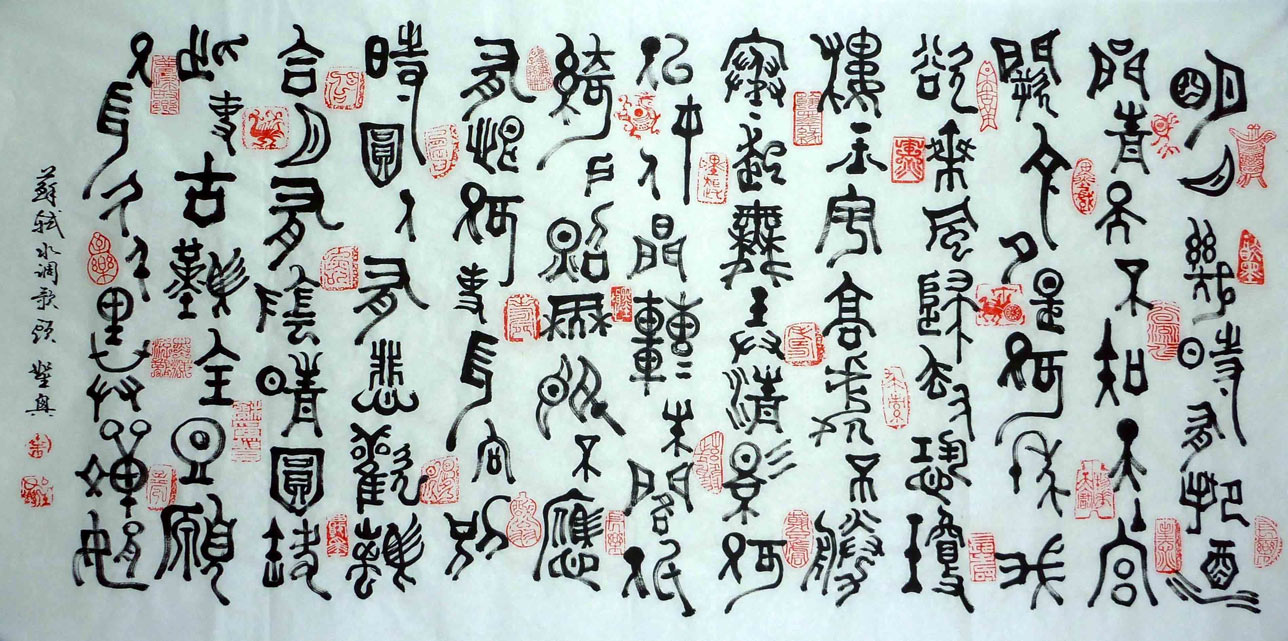 明月幾時有把酒
問青天不知天上宮
闕今夕是何年我
欲乘風歸去又恐瓊
樓玉宇高處不勝
寒起舞弄清影何
似在人間轉朱閣低
綺戶照無眠不應
有恨何事長向別
時圓人有悲歡離
合月有陰晴圓缺
此事古難全但願
人長久千里共嬋娟
蘇軾水調歌頭